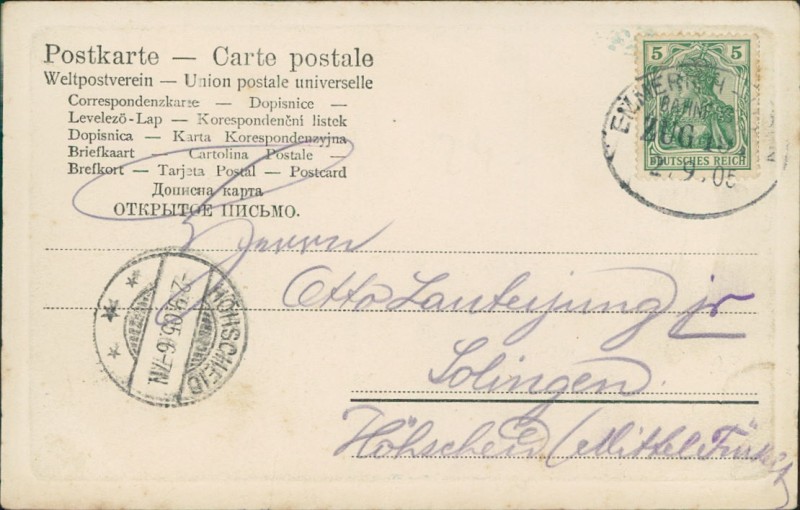 Postkarte — Carte postale
Weltpostverein — Union postale universelle
Correspondenzkarte — Dopisnice —
Levelezö-Lap — Korespondenční listek
Dopisnica — Karta Korespondenzyjna
Briefkaart — Cartolina Postale —
Brefkort — Tarjeta Postal — Postcard
Дописна карта
ОТКРЫТОЕ ПИСЬМО.
5 5
DEUTSCHES REICH
EMMERICH
BAHNPOST
ZUG
2.9.05
HÖHSCHEID
-2.9.05.6-7N.
Herrn
Otto Lauterjung jr
Solingen.
Höhscheid (Mittel